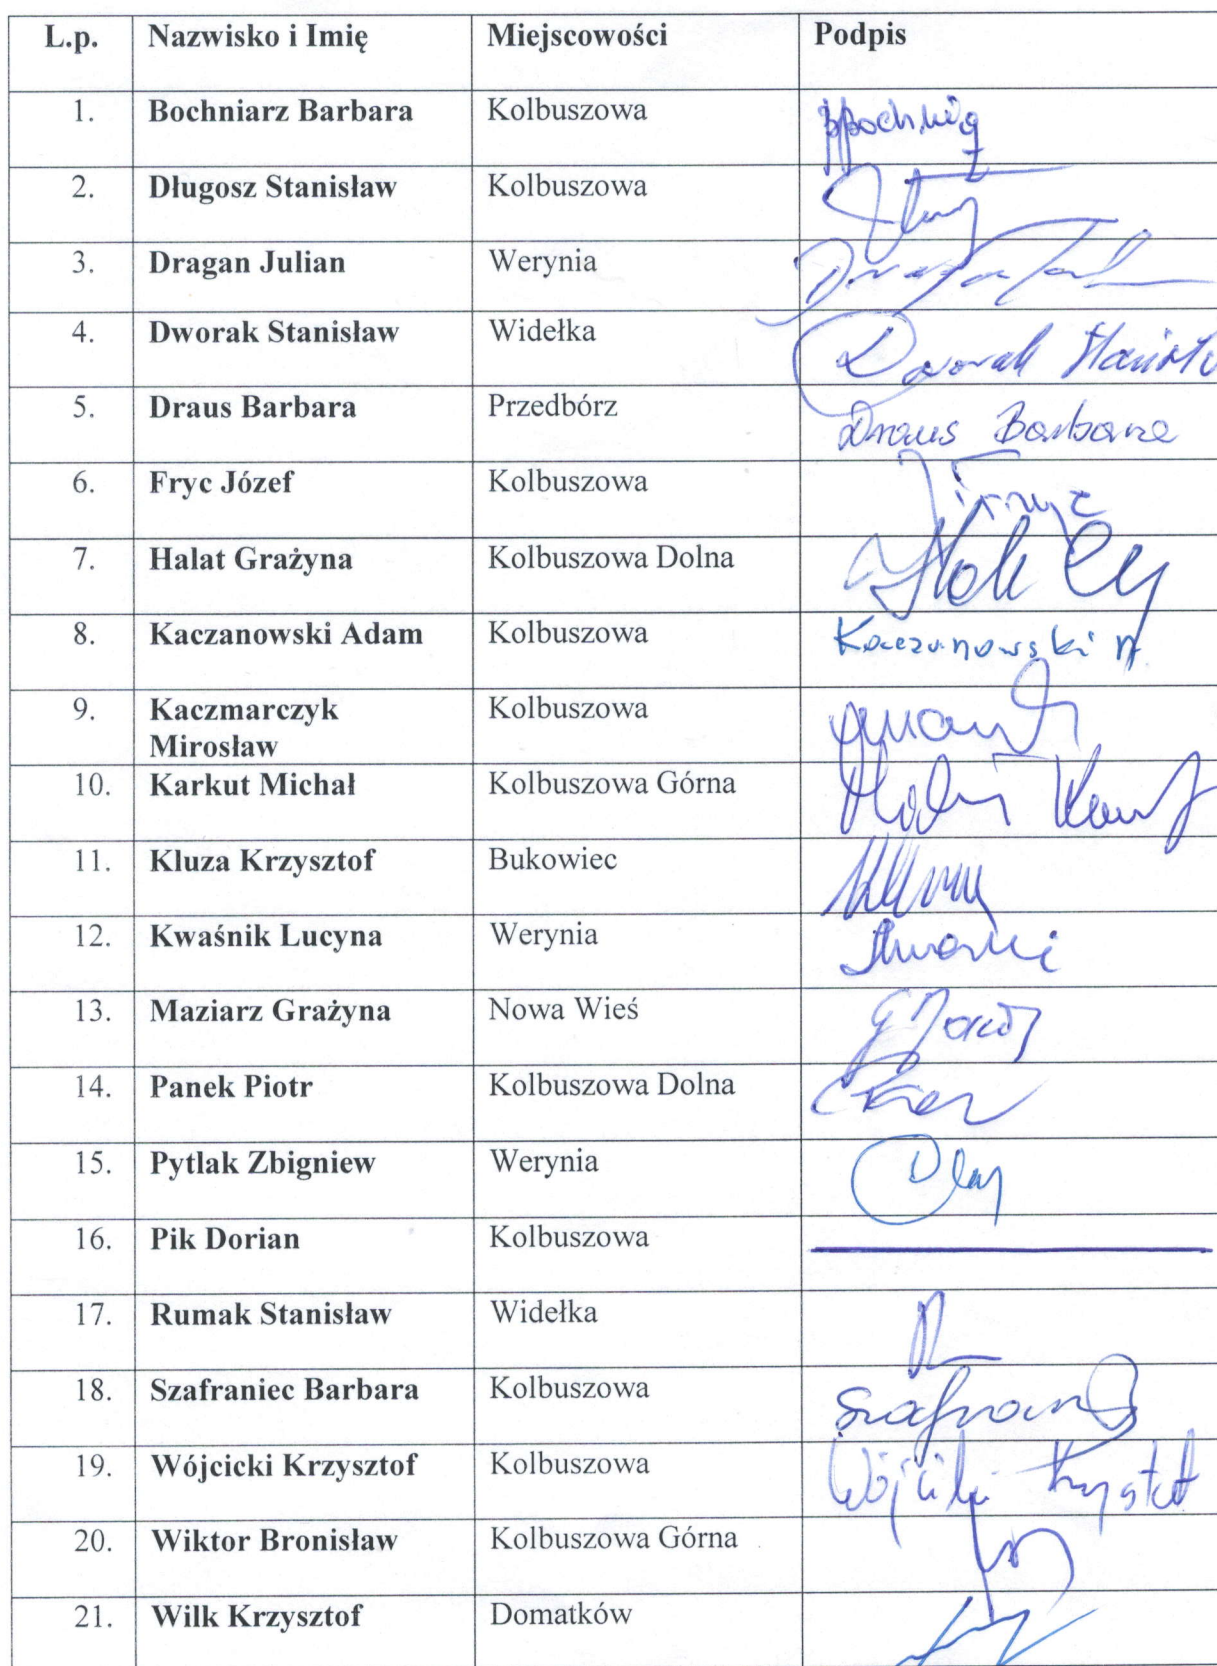 L.p. Nazwisko i Imię Miejscowości Podpis
1. Bochniarz Barbara Kolbuszowa
2. Długosz Stanisław Kolbuszowa
3. Dragan Julian Werynia
4. Dworak Stanisław Widełka Dworak
5. Draus Barbara Przedbórz Draus Barbara
6. Fryc Józef Kolbuszowa
7. Halat Grażyna Kolbuszowa Dolna
8. Kaczanowski Adam Kolbuszowa Kaczanowski A
9. Kaczmarczyk Kolbuszowa
Mirosław
10. Karkut Michał Kolbuszowa Górna
11. Kluza Krzysztof Bukowiec
12. Kwaśnik Lucyna Werynia
13. Maziarz Grażyna Nowa Wieś
14. Panek Piotr Kolbuszowa Dolna
15. Pytlak Zbigniew Werynia
16. Pik Dorian Kolbuszowa
17. Rumak Stanisław Widełka
18. Szafraniec Barbara Kolbuszowa
19. Wójcicki Krzysztof Kolbuszowa
20. Wiktor Bronisław Kolbuszowa Górna
21. Wilk Krzysztof Domatków